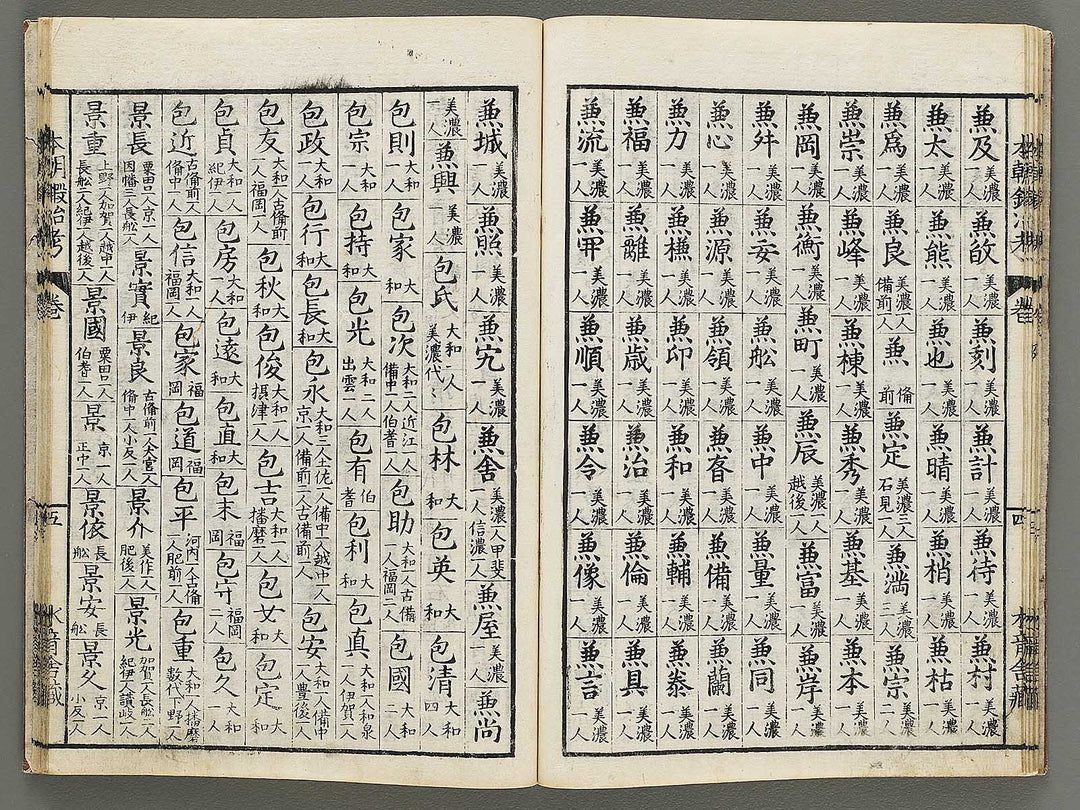 本朝鍛冶考 卷
四
水龍舍藏
兼及 美濃一人 兼故 美濃一人 兼刻 美濃一人 兼計 美濃一人 兼待 美濃一人 兼村 美濃一人
兼太 美濃一人 兼熊 美濃一人 兼也 美濃一人 兼晴 美濃一人 兼梢 美濃一人 兼枯 美濃一人
兼為 美濃一人 兼良 美濃一人備前一人 兼 備前 兼定 美濃三人石見一人 兼満 美濃三人 兼宗 美濃二人
兼崇 美濃一人 兼峰 美濃一人 兼棟 美濃一人 兼秀 美濃一人 兼基 美濃一人 兼本 美濃一人
兼岡 美濃一人 兼衡 美濃一人 兼町 美濃一人 兼辰 美濃一人越後一人 兼富 美濃一人 兼岸 美濃一人
兼舛 美濃一人 兼安 美濃一人 兼舩 美濃一人 兼中 美濃一人 兼量 美濃一人 兼同 美濃一人
兼心 美濃一人 兼源 美濃一人 兼領 美濃一人 兼 美濃一人 兼備 美濃一人 兼蘭 美濃一人
兼力 美濃一人 兼㯢 美濃一人 兼印 美濃一人 兼和 美濃一人 兼輔 美濃一人 兼泰 美濃一人
兼福 美濃一人 兼離 美濃一人 兼歳 美濃一人 兼治 美濃一人 兼倫 美濃一人 兼具 美濃一人
兼流 美濃一人 兼甲 美濃一人 兼順 美濃一人 兼令 美濃一人 兼像 美濃一人 兼言 美濃一人
兼城 美濃一人 兼照 美濃一人 兼宄 美濃一人 兼舍 美濃一人甲斐一人信濃一人 兼屋 美濃一人 兼尚
美濃一人 兼興 美濃一人 包氏 大和一人美濃代々 包林 大和 包英 大和 包清 大和四人
包則 大和一人 包家 大和 包次 大和二人近江一人備中一人伯耆一人 包助 大和一人古備前一人福岡二人 包國 大和二人
包宗 大和一人 包持 大和 包光 大和二人出雲一人 包有 伯耆 包利 大和 包真 大和一人和泉一人伊賀一人
包政 大和一人 包行 大和 包長 大和 包永 大和三人土佐一人備中一人越中一人京一人備前二人古備前一人 包安 大和一人備中一人豊後一人
包友 大和一人古備前一人福岡一人 包秋 大和 包俊 大和一人摂津一人 包吉 大和一人播磨一人 包女 大和 包定 大和
包貞 大和一人紀伊一人 包房 大和一人 包遠 大和 包直 大和 包末 福岡 包守 福岡二人 包久 大和一人
包近 古備前一人備中一人 包信 大和一人福岡一人 包家 福岡 包道 福岡 包平 河内一人古備前一人肥前一人 包重 大和一人播磨数代下野一人
景長 粟田口一人京一人因幡三人長舩一人 景實 紀伊 景良 古備前一人大宮一人備中一人小反一人 景介 美作一人肥後一人 景光 加賀一人長舩二人紀伊一人讃岐一人
景重 上野一人加賀一人越中一人長舩一人紀伊一人越後一人 景國 粟田口一人伯耆一人 景 京一人正中一人 景依 長舩 景安 長舩 景久 京一人小反一人
本朝鍛冶考 卷
五
水龍舍藏